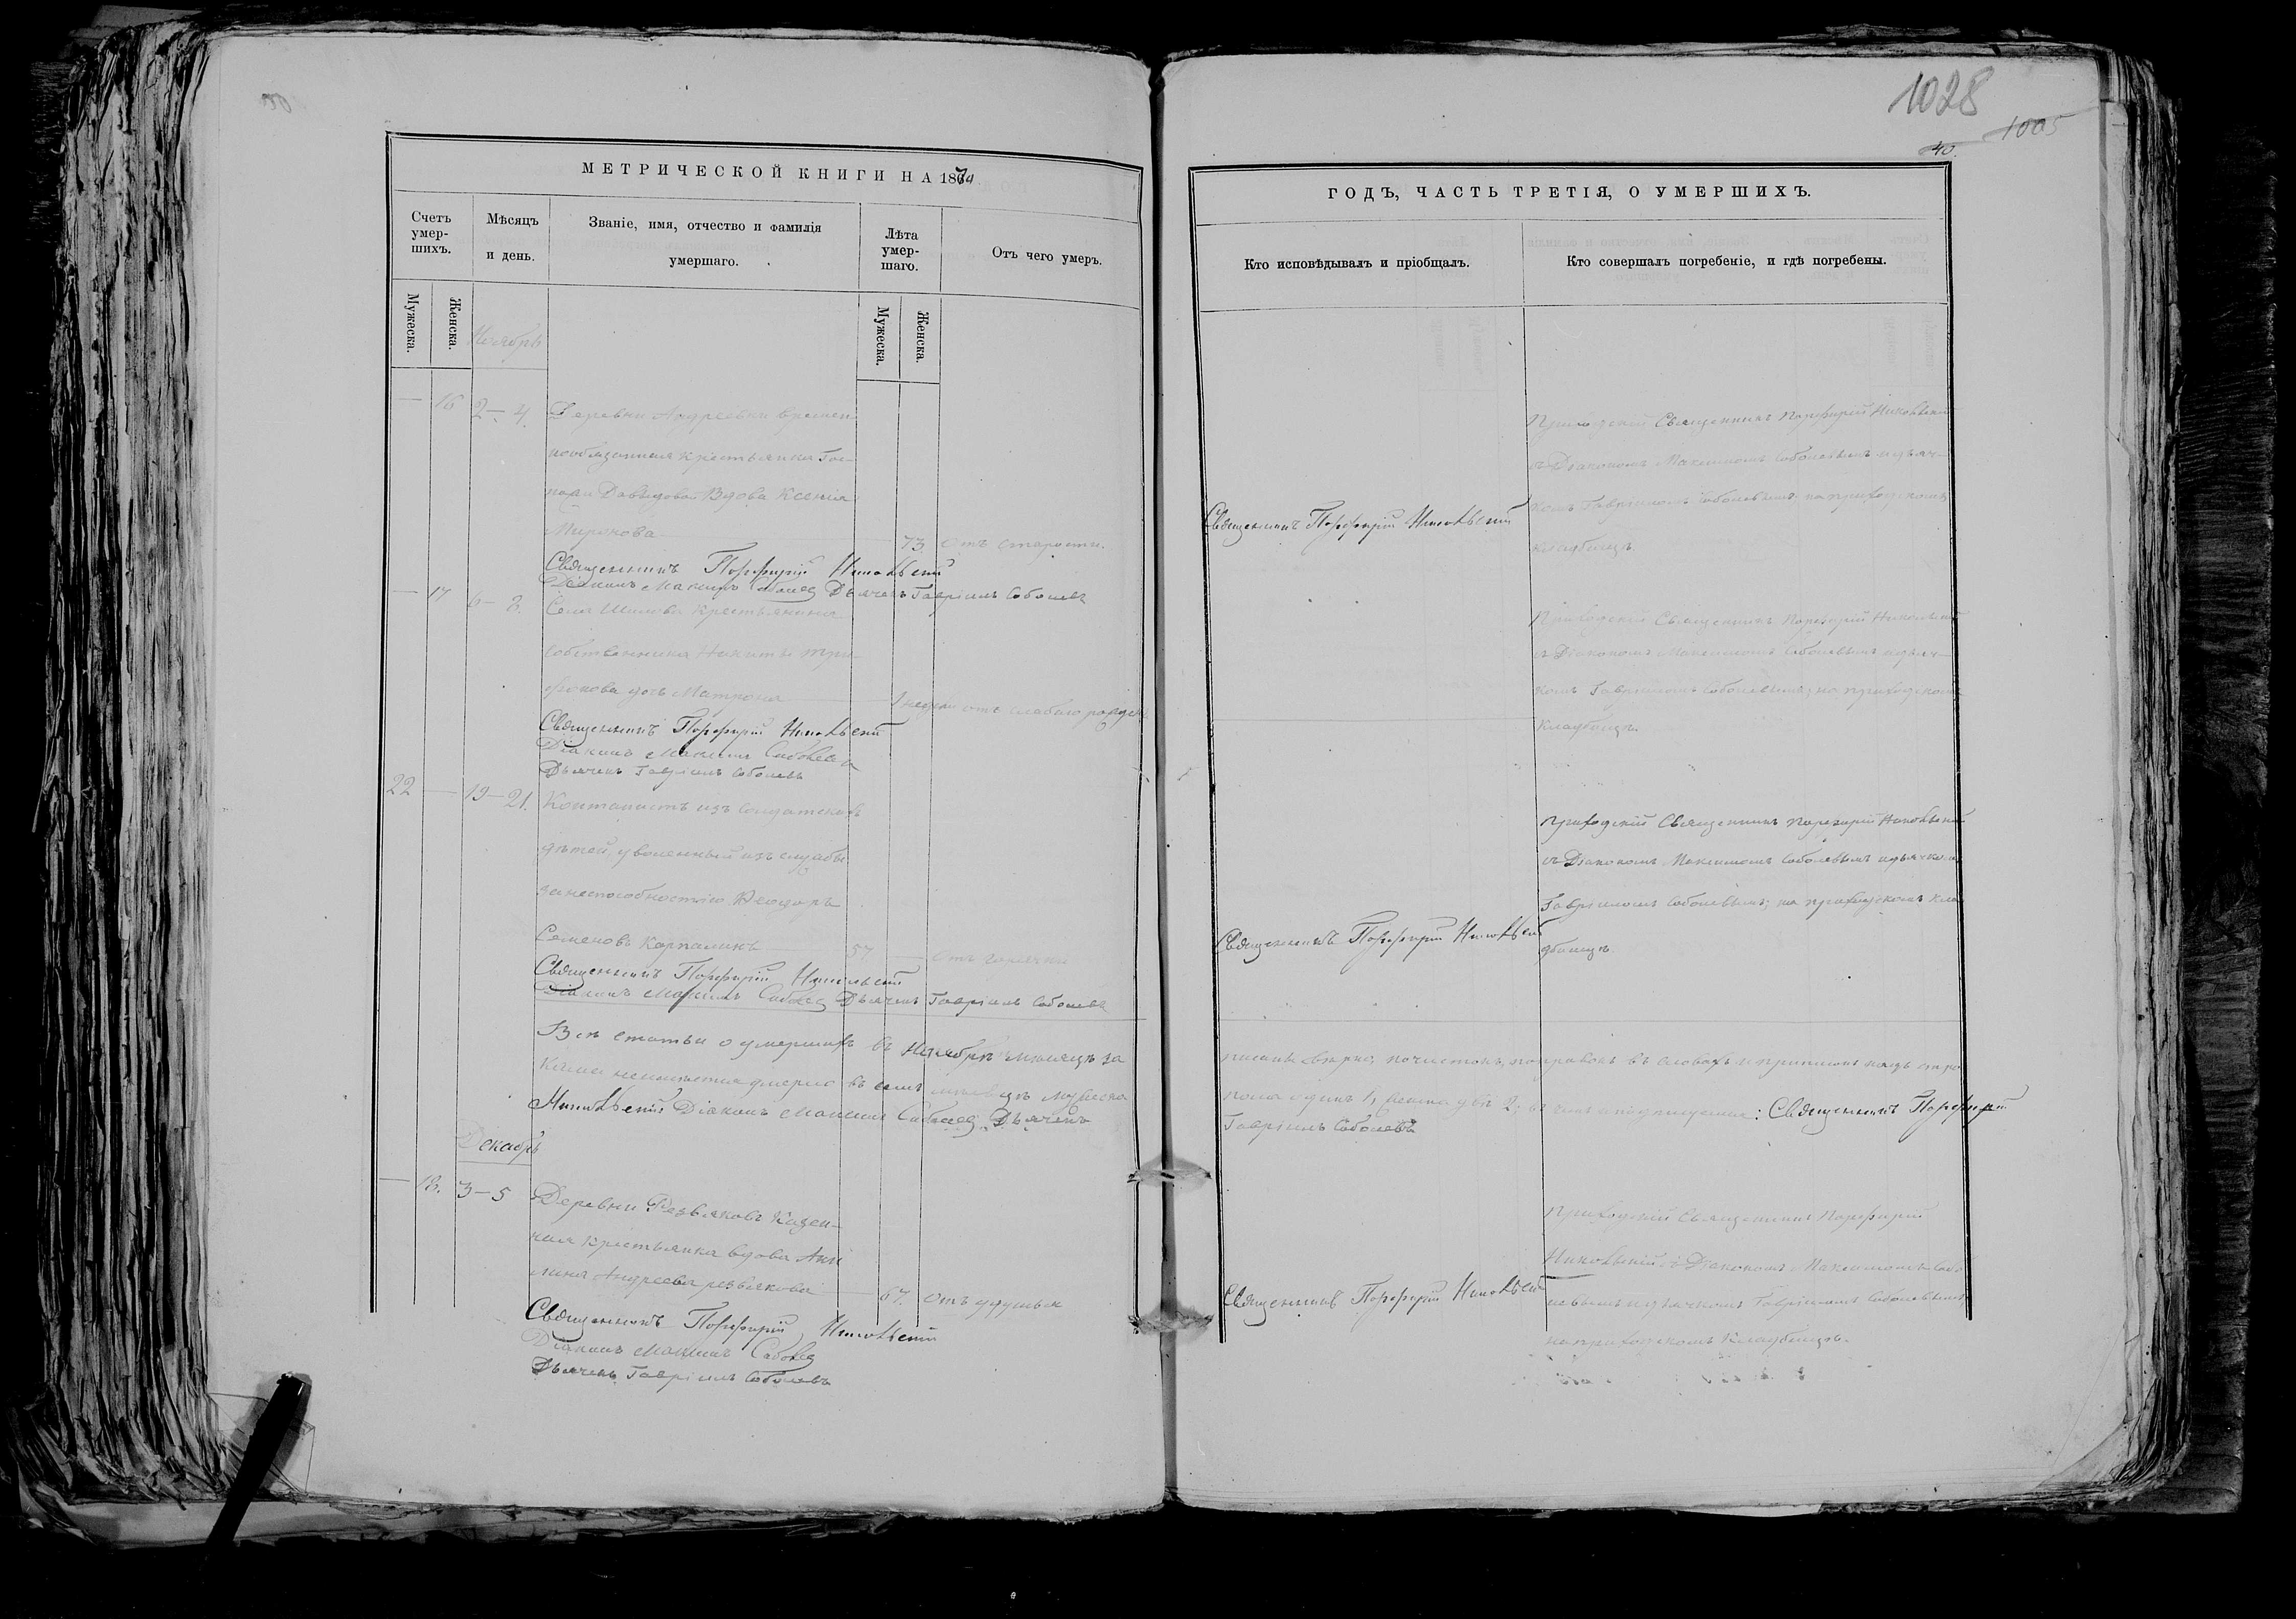 1028
1005
40
МЕТРИЧЕСКОЙ КНИГИ НА 1870
Счетъ умер-шихъ.
Мѣсяцъ и день.
Званіе, имя, отчество и фамилія умершаго.
Лѣта умер-шаго.
Отъ чего умеръ.
Мужеска.
Женска.
Мужеска.
Женска.
Ноябрь
— 16 2–4. Деревни Андреевки времен-
нообязанная крестьянка Гос-
пожи Давыдовой Вдова Ксенія
Миронова — 73 Отъ старости.
Священникъ Порфирій Никольскій
Діаконъ Максимъ Соболев Дьячекъ Гавріилъ Соболевъ
— 17 6–8. Села Шилова Крестьянина
собственника Никиты Три-
фонова дочь Матрона — 1 недѣли отъ слабаго рожден
Священникъ Порфирій Никольскій
Діаконъ Максимъ Соболевъ
Дьячекъ Гавріилъ Соболевъ
22 — 19–21. Контонистъ изъ солдатскихъ
дѣтей, уволенный изъ службы
за неспособностію Ѳеодоръ
Семеновъ Карпалинъ 57 — Отъ горячки
Священникъ Порфирій Никольскій
Діаконъ Максимъ Соболев Дьячекъ Гавріилъ Соболевъ
Всѣ статьи о умершихъ въ Ноябрѣ мѣсяцѣ за
умерло въ семъ мѣсяцѣ мужеска
Никольскій Діаконъ Максимъ Соболев Дьячекъ
Декабрь
— 18. 3–5 Деревни Резьяковъ Казен-
ная крестьянка вдова Аки
лина Андреева резьякова — 67. Отъ удушья
Священникъ Порфирій Никольскій
Діаконъ Максимъ Соболев
Дьячекъ Гавріилъ Соболевъ
ГОДЪ, ЧАСТЬ ТРЕТІЯ, О УМЕРШИХЪ.
Кто исповѣдывалъ и пріобщалъ.
Кто совершалъ погребеніе, и гдѣ погребены.
Приходскій Священникъ Порфирій Никольскій
съ Діакономъ Максимомъ Соболевымъ и дьяч-
комъ Гавріиломъ Соболевымъ; на приходскомъ
кладбищѣ.
Священникъ Порфирій Никольскій
Приходскій Священникъ Порфирій Никольскій
съ Діакономъ Максимомъ Соболевымъ и дьяч-
комъ Гавріиломъ Соболевымъ; на приходскомъ
кладбищѣ.
Приходскій Священникъ Порфирій Никольскій
съ Діакономъ Максимомъ Соболевымъ и дьячкомъ
Гавріиломъ Соболевымъ; на приходскомъ кла
дбищѣ.
Священникъ Порфирій Никольскій
писаны вѣрно; почистокъ, поправокъ въ словахъ и приписокъ надъ стро
пола одинъ 1, женска двѣ 2; въ чемъ и подписуемся: Священникъ Порфирій
Гавріилъ Соболевъ
Приходскій Священникъ Порфирій
Никольскій съ Діакономъ Максимомъ Собо
левымъ и дьячкомъ Гавріиломъ Соболевымъ
на приходскомъ Кладбищѣ.
Священникъ Порфирій Никольскій